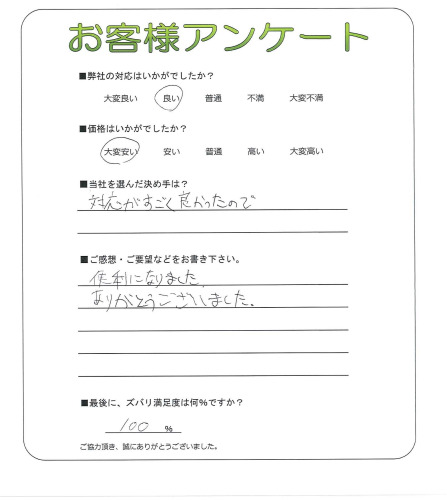 お客様アンケート
■弊社の対応はいかがでしたか?
大変良い 良い 普通 不満 大変不満
■価格はいかがでしたか?
大変安い 安い 普通 高い 大変高い
■当社を選んだ決め手は?
対応がすごく良かったので
■ご感想・ご要望などをお書き下さい。
便利になりました。
ありがとうございました。
■最後に、ズバリ満足度は何%ですか?
100 %
ご協力頂き、誠にありがとうございました。